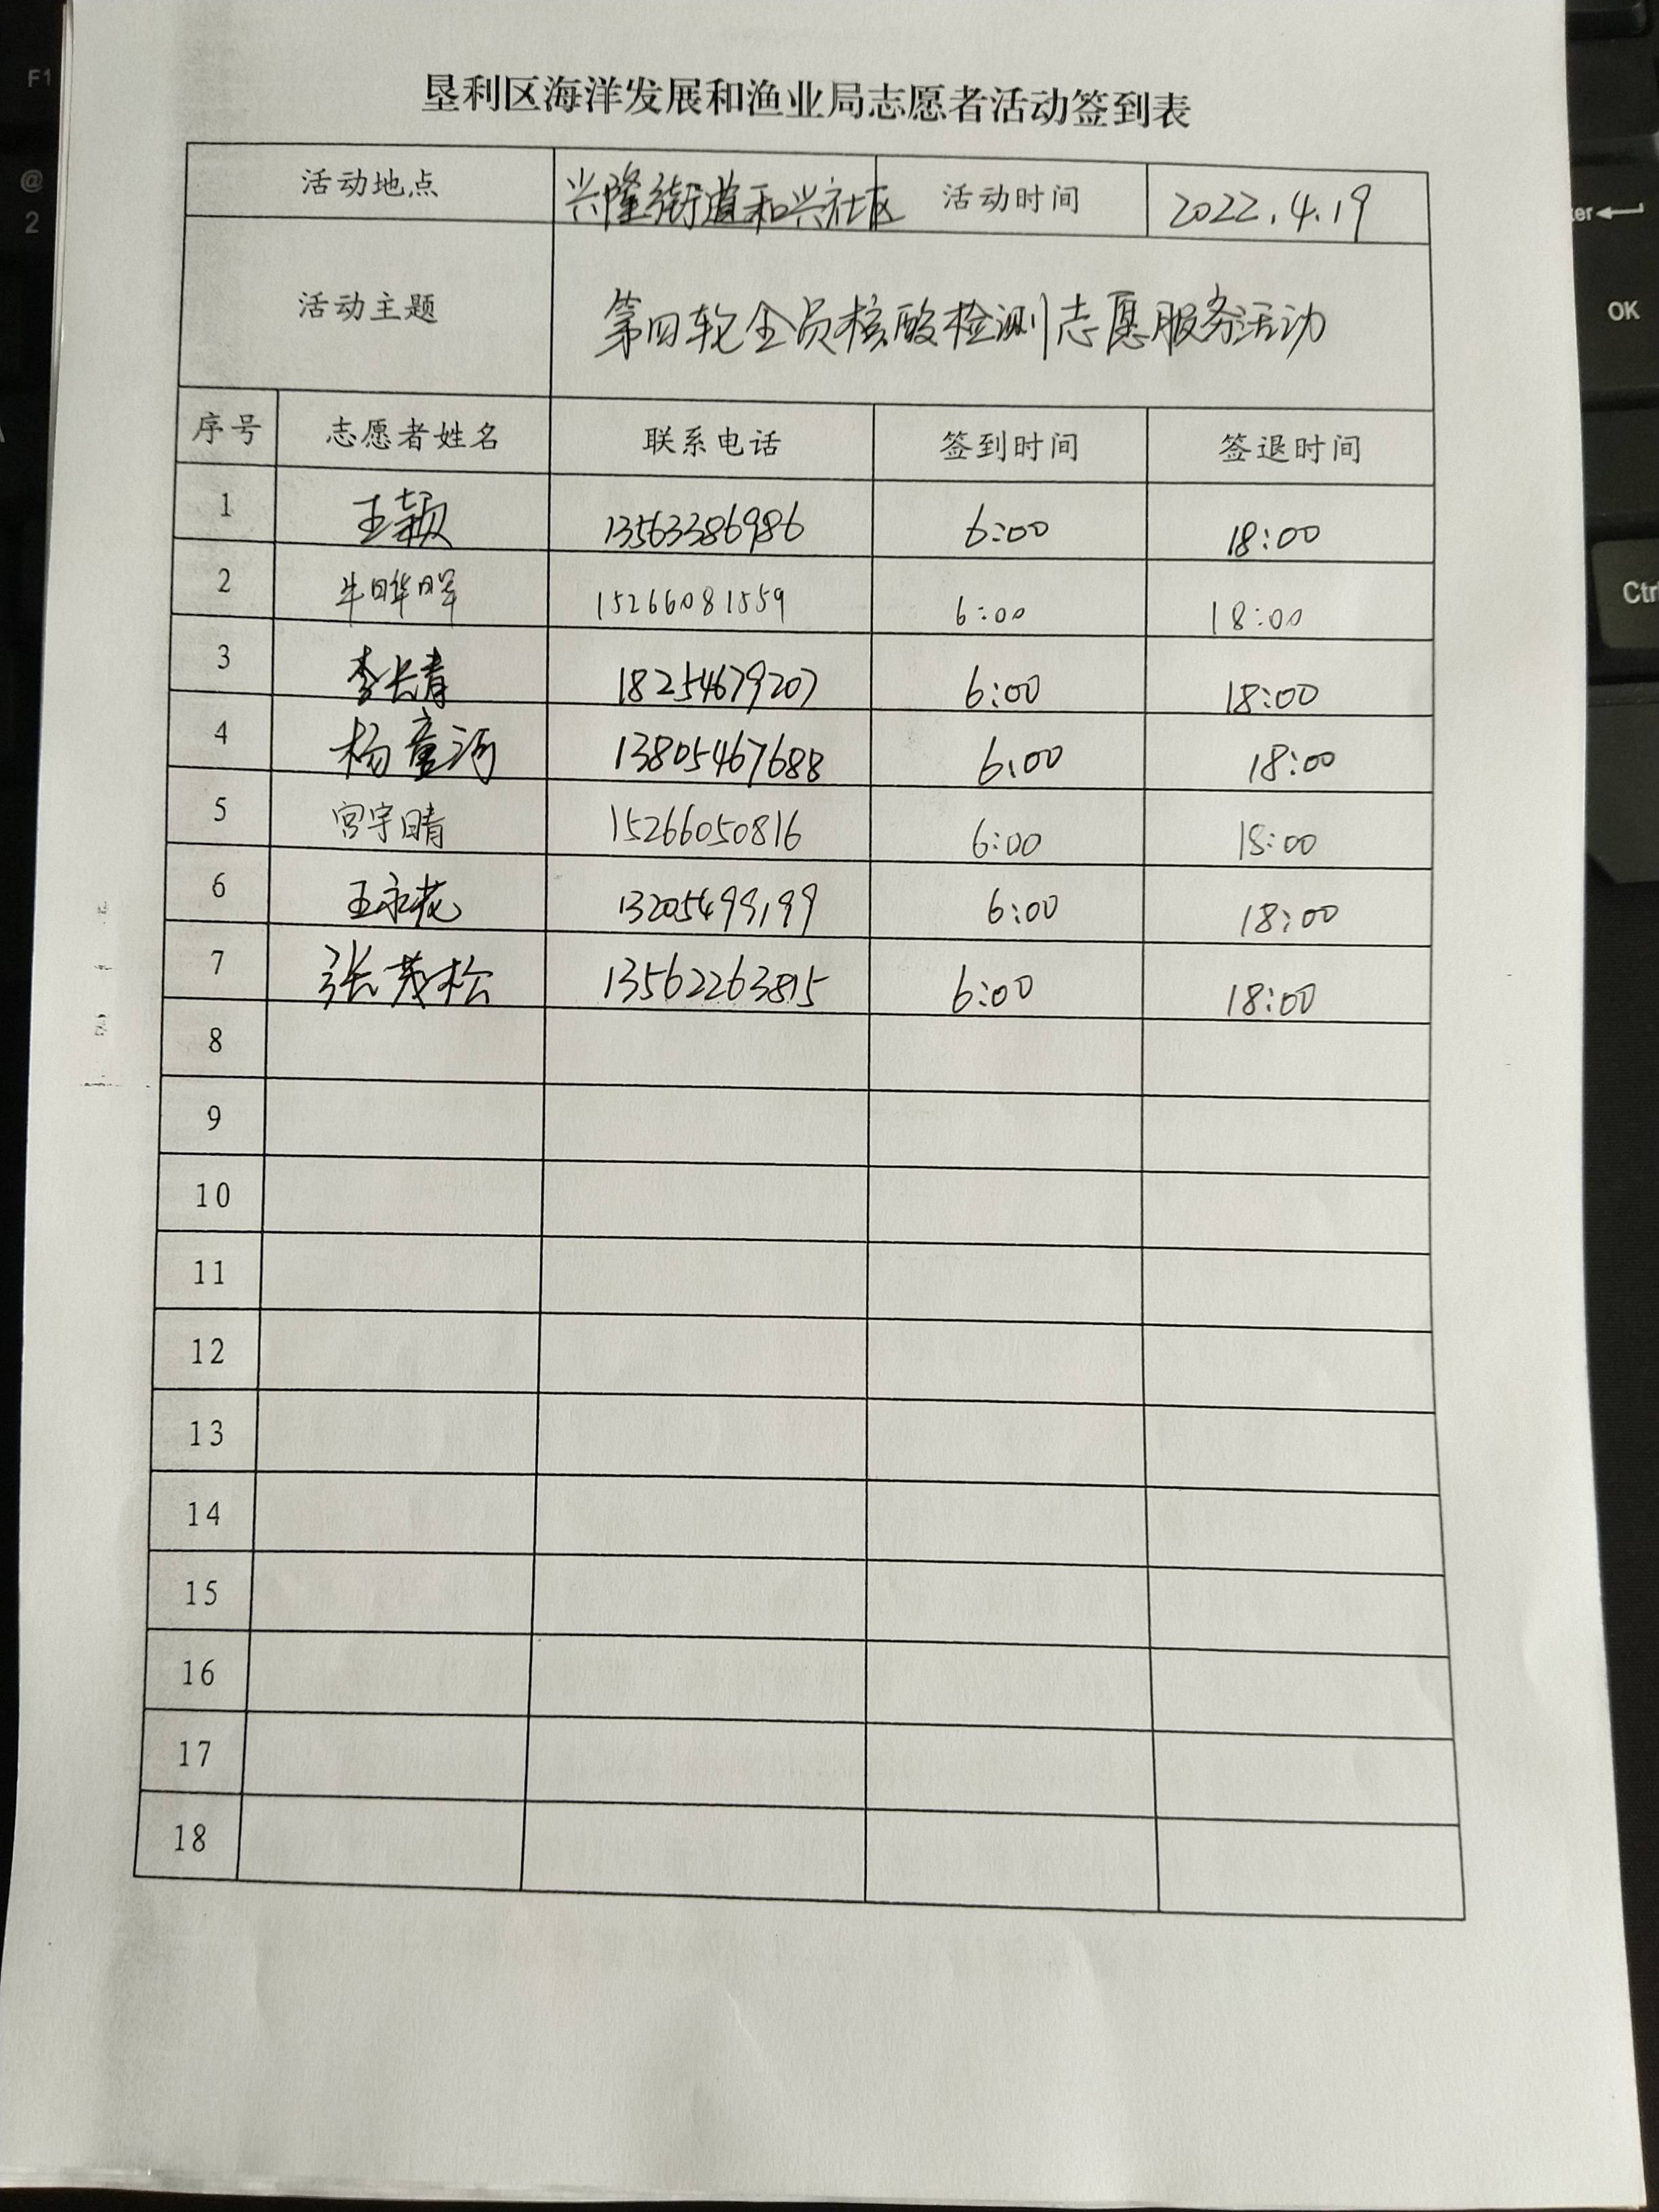 垦利区海洋发展和渔业局志愿者活动签到表
活动地点 兴隆街道和兴社区 活动时间 2022.4.19
活动主题 第四轮全员核酸检测志愿服务活动
序号 志愿者姓名 联系电话 签到时间 签退时间
1 王颖 13563386986 6:00 18:00
2 牛晔晖 15266081559 6:00 18:00
3 李长青 18254679207 6:00 18:00
4 杨童河 13805467688 6:00 18:00
5 宫宇晴 15266050816 6:00 18:00
6 王永花 13205499199 6:00 18:00
7 张茂松 13562263815 6:00 18:00
8
9
10
11
12
13
14
15
16
17
18
F1
@
2
OK
Ctr